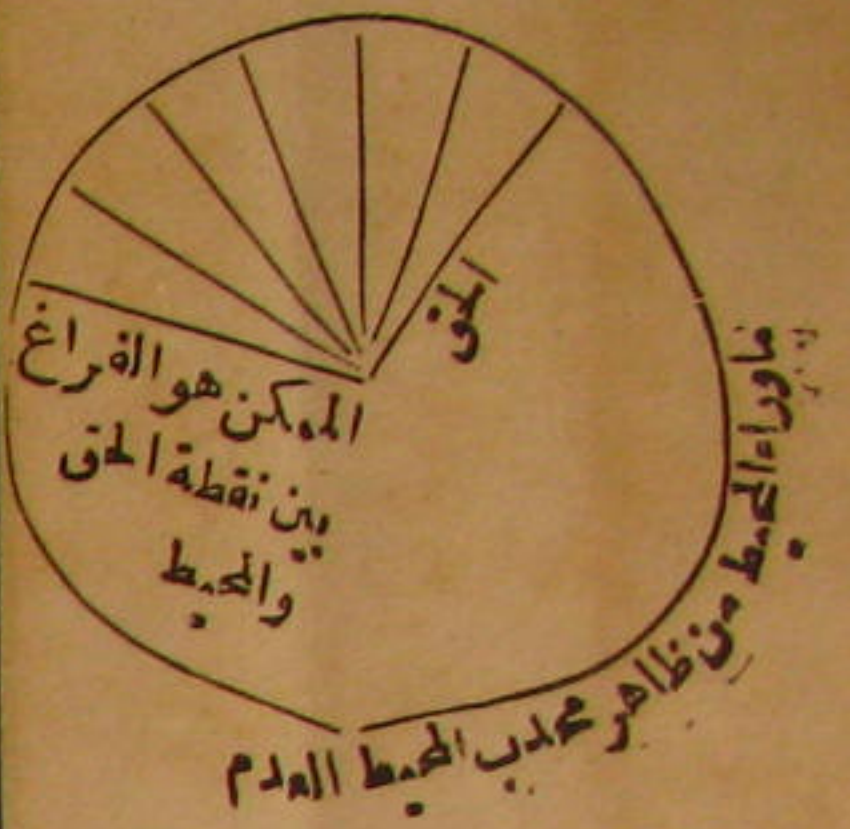 الحق
الممكن هو الفراغ
بين نقطة الحق
والمحيط
ماوراء المحيط من ظاهر محدب المحيط العدم